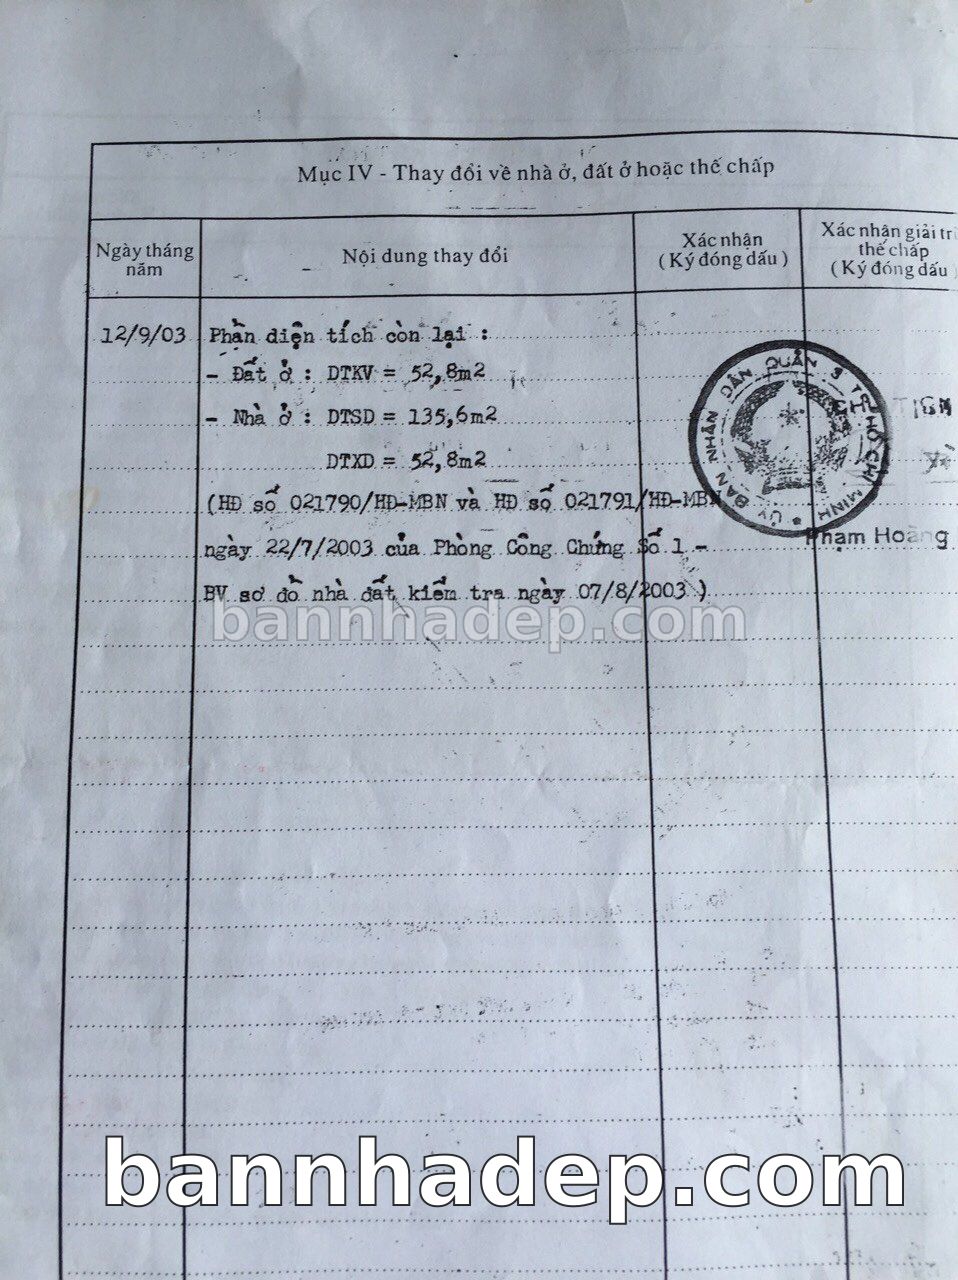 Mục IV - Thay đổi về nhà ở, đất ở hoặc thế chấp
Ngày tháng năm
Nội dung thay đổi
Xác nhận
( Ký đóng dấu )
Xác nhận giải
thế chấp
( Ký đóng dấu
12/9/03
Phần diện tích còn lại :
- Đất ở : DTKV = 52,8m2
- Nhà ở : DTSD = 135,6m2
DTXD = 52,8m2
(HĐ số 021790/HĐ-MBN và HĐ số 021791/HĐ-MBN
ngày 22/7/2003 của Phòng Công Chứng Số 1 -
BV sơ đồ nhà đất kiểm tra ngày 07/8/2003 )
ỦY BAN NHÂN DÂN QUẬN 3 TP HỒ CHÍ MINH
Phạm Hoàng
bannhadep.com
bannhadep.com